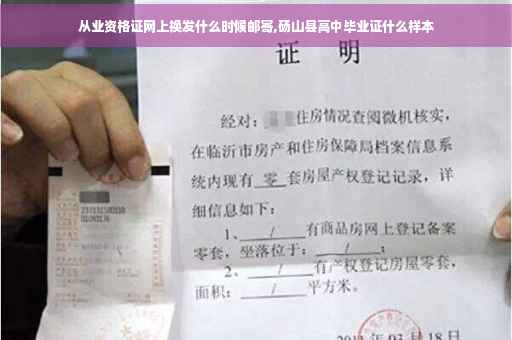 从业资格证网上换发什么时候邮寄,砀山县高中毕业证什么样本
证 明
经对：住房情况查阅微机核实，
在临沂市房产和住房保障局档案信息系
统内现有 零 套房屋产权登记记录，详
细信息如下：
1、 / 有商品房网上登记备案
零套，坐落位于： / ；
2、 / 有产权登记房屋零套，
面积： / 平方米。